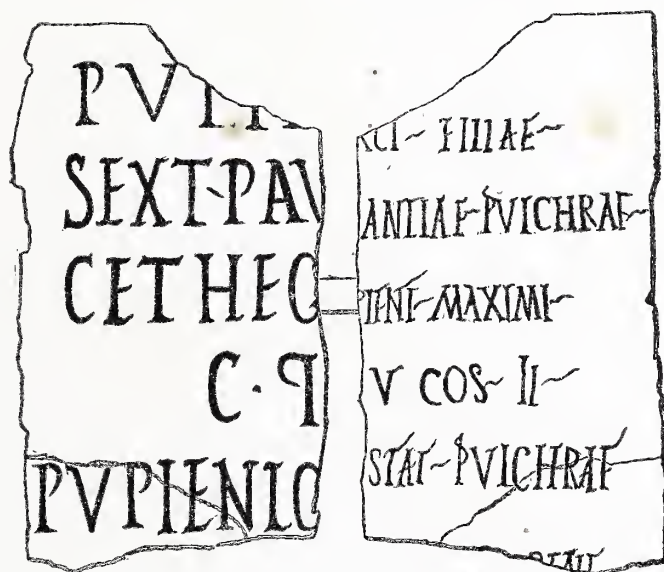 SEXT·PAV
CETHEG
C·P
PVPIENIO
RCI~ FILIAE~
ANTIAE~PVLCHRAE~
PIENI~MAXIMI~
V COS~ II~
STAT~PVLCHRAE